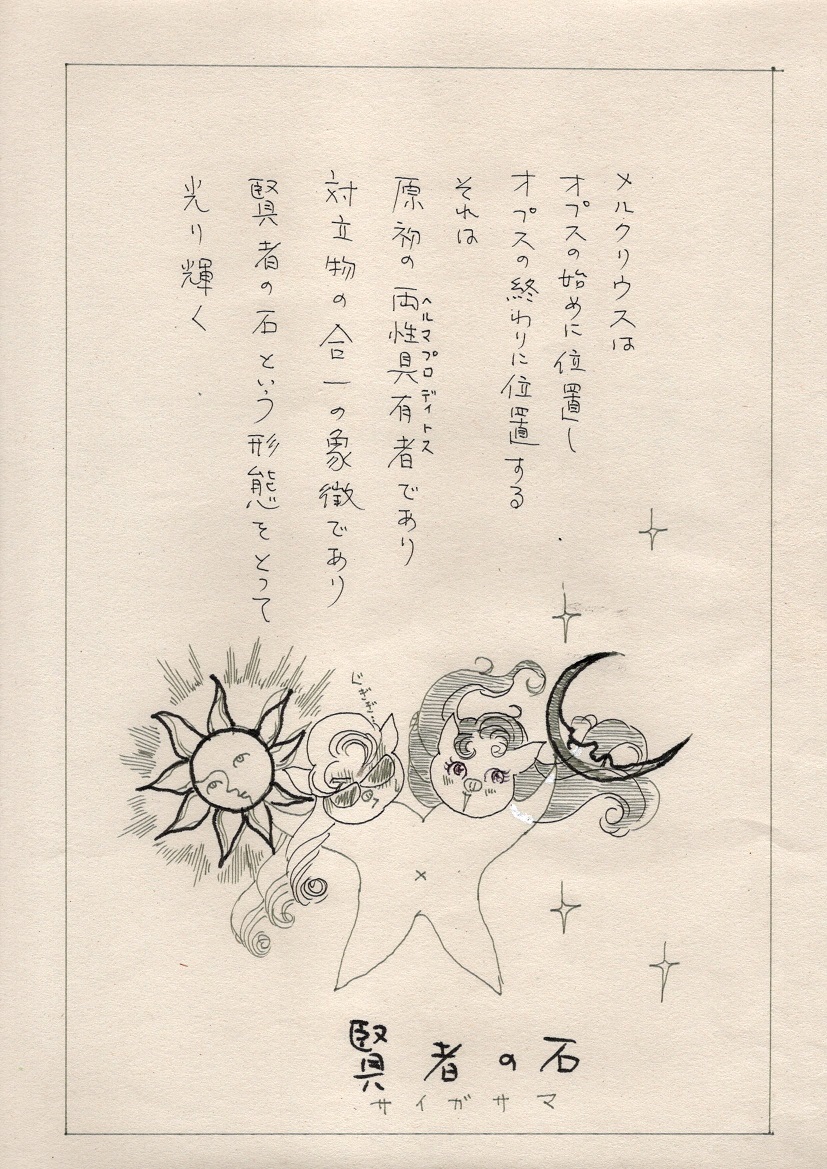 メルクリウスは
オプスの始めに位置し
オプスの終わりに位置する
それは
原初の両性具有者であり
ヘルマプロディトス
対立物の合一の象徴であり
賢者の石という形態をとって
光り輝く
じぎぎ…
賢者の石
サイガサマ